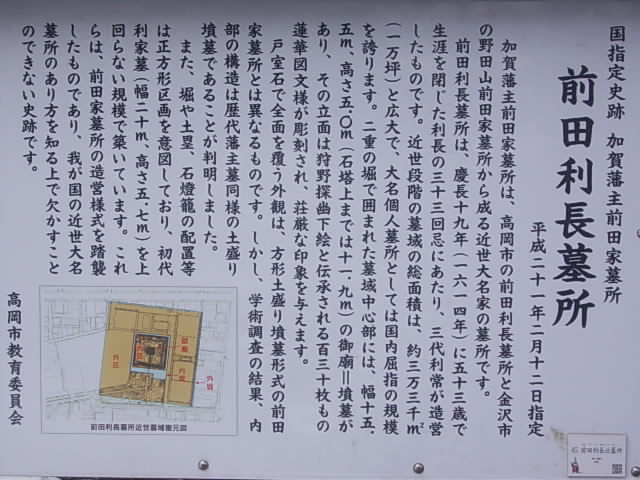 国指定史跡 加賀藩主前田家墓所
前田利長墓所
平成二十一年二月十二日指定
加賀藩主前田家墓所は、高岡市の前田利長墓所と金沢市
の野田山前田家墓所から成る近世大名家の墓所です。
前田利長墓所は、慶長十九年(一六一四年)に五十三歳で
生涯を閉じた利長の三十三回忌にあたり、三代利常が造営
したものです。近世段階の墓域の総面積は、約三万三千㎡
(一万坪)と広大で、大名個人墓所としては国内屈指の規模
を誇ります。二重の堀で囲まれた墓域中心部には、幅十五.
五m、高さ五.〇m(石塔上までは十一.九m)の御廟=墳墓が
あり、その立面は狩野探幽下絵と伝承される百三十枚もの
蓮華図文様が彫刻され、荘厳な印象を与えます。
戸室石で全面を覆う外観は、方形土盛り墳墓形式の前田
家墓所とは異なるものです。しかし、学術調査の結果、内
部の構造は歴代藩主墓同様の土盛り
墳墓であることが判明しました。
また、堀や土塁、石燈籠の配置等
は正方形区画を意図しており、初代
利家墓(幅二十m、高さ五.七m)を上
回らない規模で築いています。これ
らは、前田家墓所の造営様式を踏襲
したものであり、我が国の近世大名
墓所のあり方を知る上で欠かすこと
のできない史跡です。
高岡市教育委員会
外区
御廟
内堀
外堀
前田利長墓所近世墓域復元図
前田利長公墓所